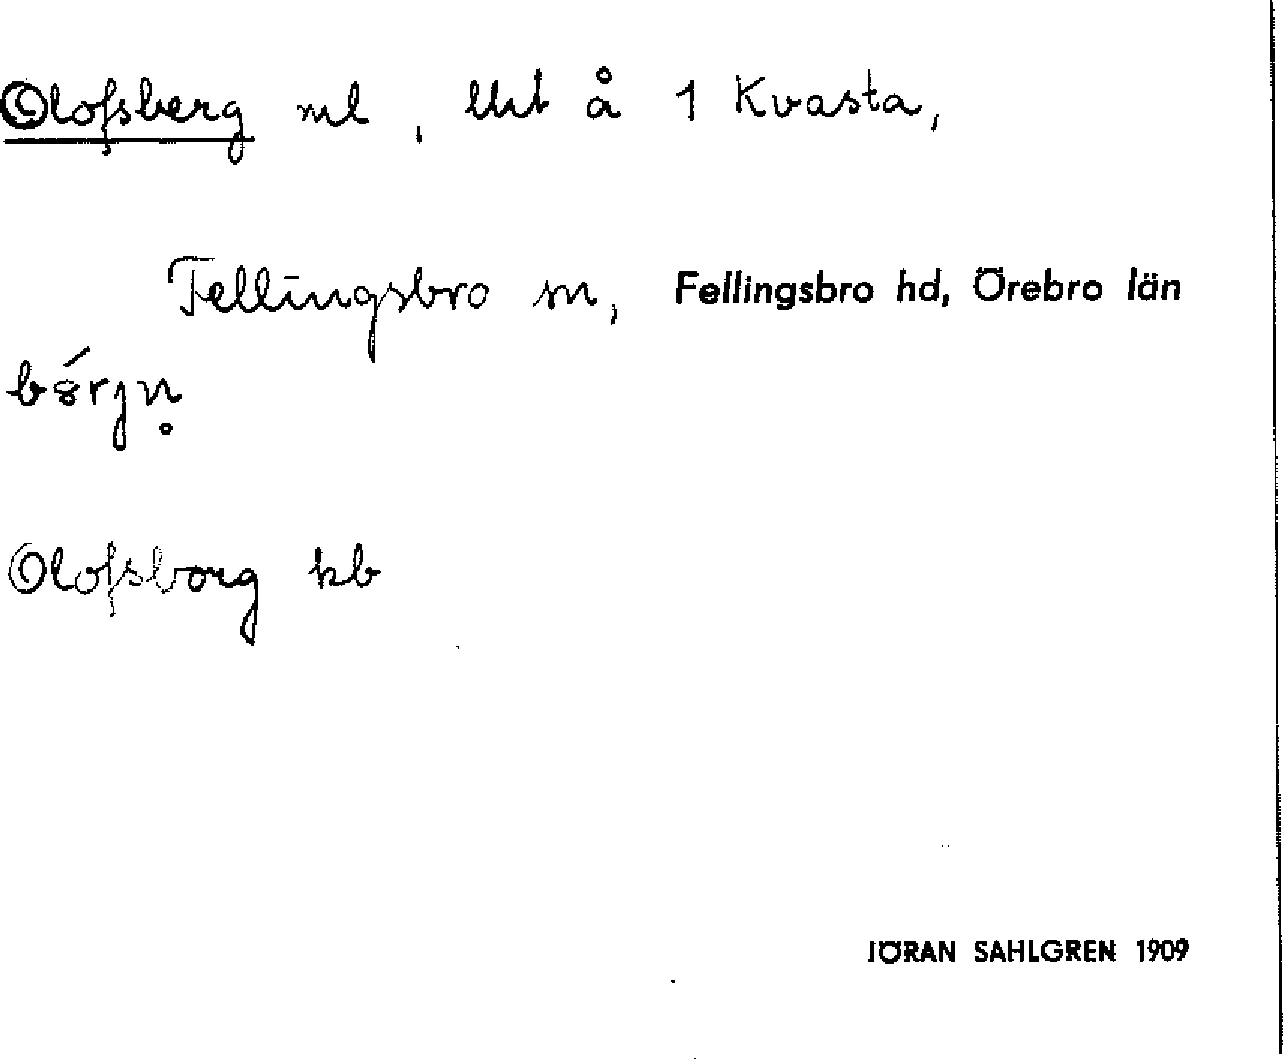 Olofsberg ml, lht å 1 Kvasta,
Fellingsbro sn, Fellingsbro hd, Örebro län
Olofsborg kb
JÖRAN SAHLGREN 1909